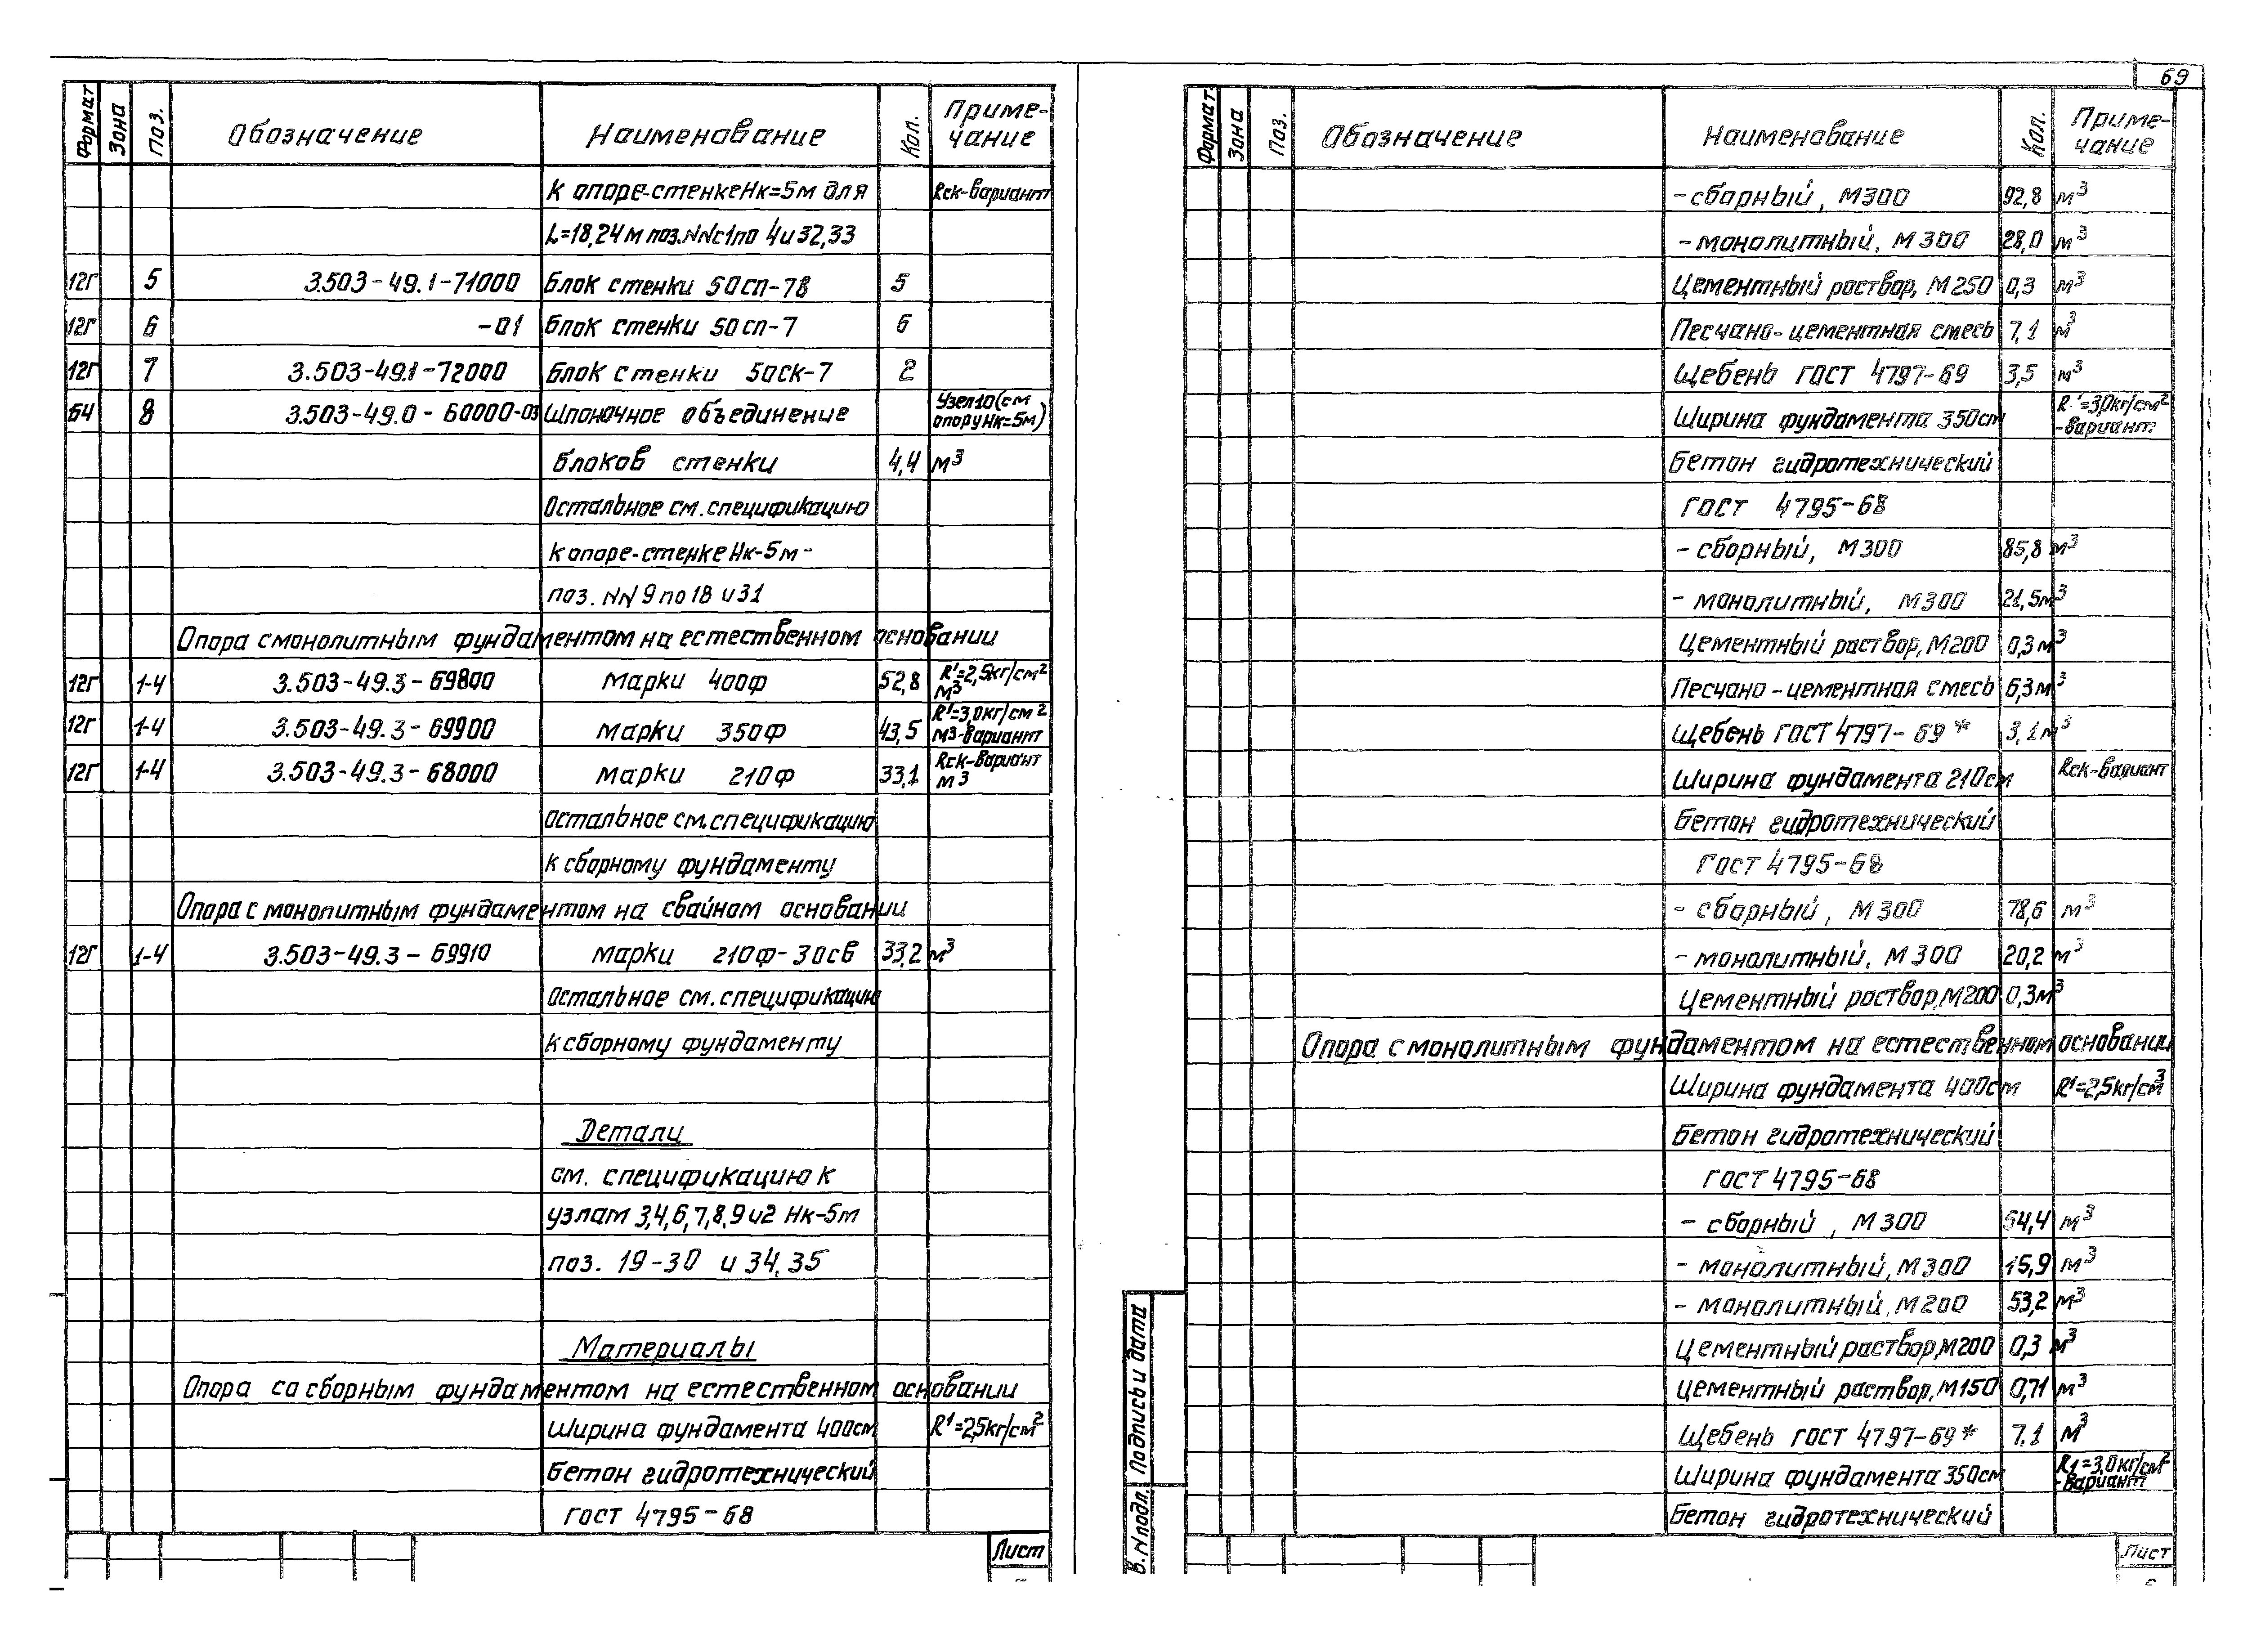 69
Формат Зона Поз. Обозначение Наименование Кол. Приме-
чание
К опоре-стенке Нк=5м для Rск-вариант
L=18,24м поз.NNс1по 4и32,33
12Г 5 3.503-49.1-71000 Блок стенки 50сп-78 5
12Г 6 -01 Блок стенки 50сп-7 6
12Г 7 3.503-49.1-72000 Блок стенки 50ск-7 2
БЧ 8 3.503-49.0-60000-03 Шпоночное объединение Узел10(см
опоруНк=5м)
блоков стенки 4,4 м³
Остальное см.спецификацию
к опоре-стенке Нк-5м-
поз. NN 9 по 18 и 31
Опора с монолитным фундаментом на естественном основании
12Г 1-4 3.503-49.3-69800 марки 400ф 52,8 R'=2,5кг/см²
м³
12Г 1-4 3.503-49.3-69900 марки 350ф 43,5 R'=3,0кг/см²
м³-вариант
12Г 1-4 3.503-49.3-68000 марки 210ф 33,1 Rск-вариант
м³
Остальное см.спецификацию
к сборному фундаменту
Опора с монолитным фундаментом на свайном основании
12Г 1-4 3.503-49.3-69910 марки 210ф-30св 33,2 м³
Остальное см.спецификацию
к сборному фундаменту
Детали
см. спецификацию к
узлам 3,4,6,7,8,9и2 Нк-5м
поз. 19-30 и 34,35
Материалы
Опора со сборным фундаментом на естественном основании
Ширина фундамента 400см R¹=2,5кг/см²
Бетон гидротехнический
ГОСТ 4795-68
Лист
Формат. Зона Поз. Обозначение Наименование Кол. Приме-
чание
-сборный, М300 92,8 м³
-монолитный, М300 28,0 м³
Цементный раствор, М250 0,3 м³
Песчано-цементная смесь 7,1 м³
Щебень ГОСТ 4797-69 3,5 м³
Ширина фундамента 350см R'=3,0кг/см²
-вариант
Бетон гидротехнический
ГОСТ 4795-68
-сборный, М300 85,8 м³
-монолитный, М300 21,5м³
Цементный раствор, М200 0,3м³
Песчано-цементная смесь 6,3м³
Щебень ГОСТ 4797-69* 3,1м³
Ширина фундамента 210см Rск-вариант
Бетон гидротехнический
ГОСТ 4795-68
-сборный, М300 78,6 м³
-монолитный, М300 20,2 м³
Цементный раствор, М200 0,3м³
Опора с монолитным фундаментом на естественном основании
Ширина фундамента 400см R¹=2,5кг/см³
Бетон гидротехнический
ГОСТ 4795-68
- сборный, М300 54,4 м³
- монолитный, М300 15,9 м³
- монолитный, М200 53,2 м³
Цементный раствор, М200 0,3 м³
Цементный раствор, М150 0,71 м³
Щебень ГОСТ 4797-69* 7.1 м³
Ширина фундамента 350см R1=3,0кг/см²
-вариант
Бетон гидротехнический
Лист
В.Nподл. Подпись и дата